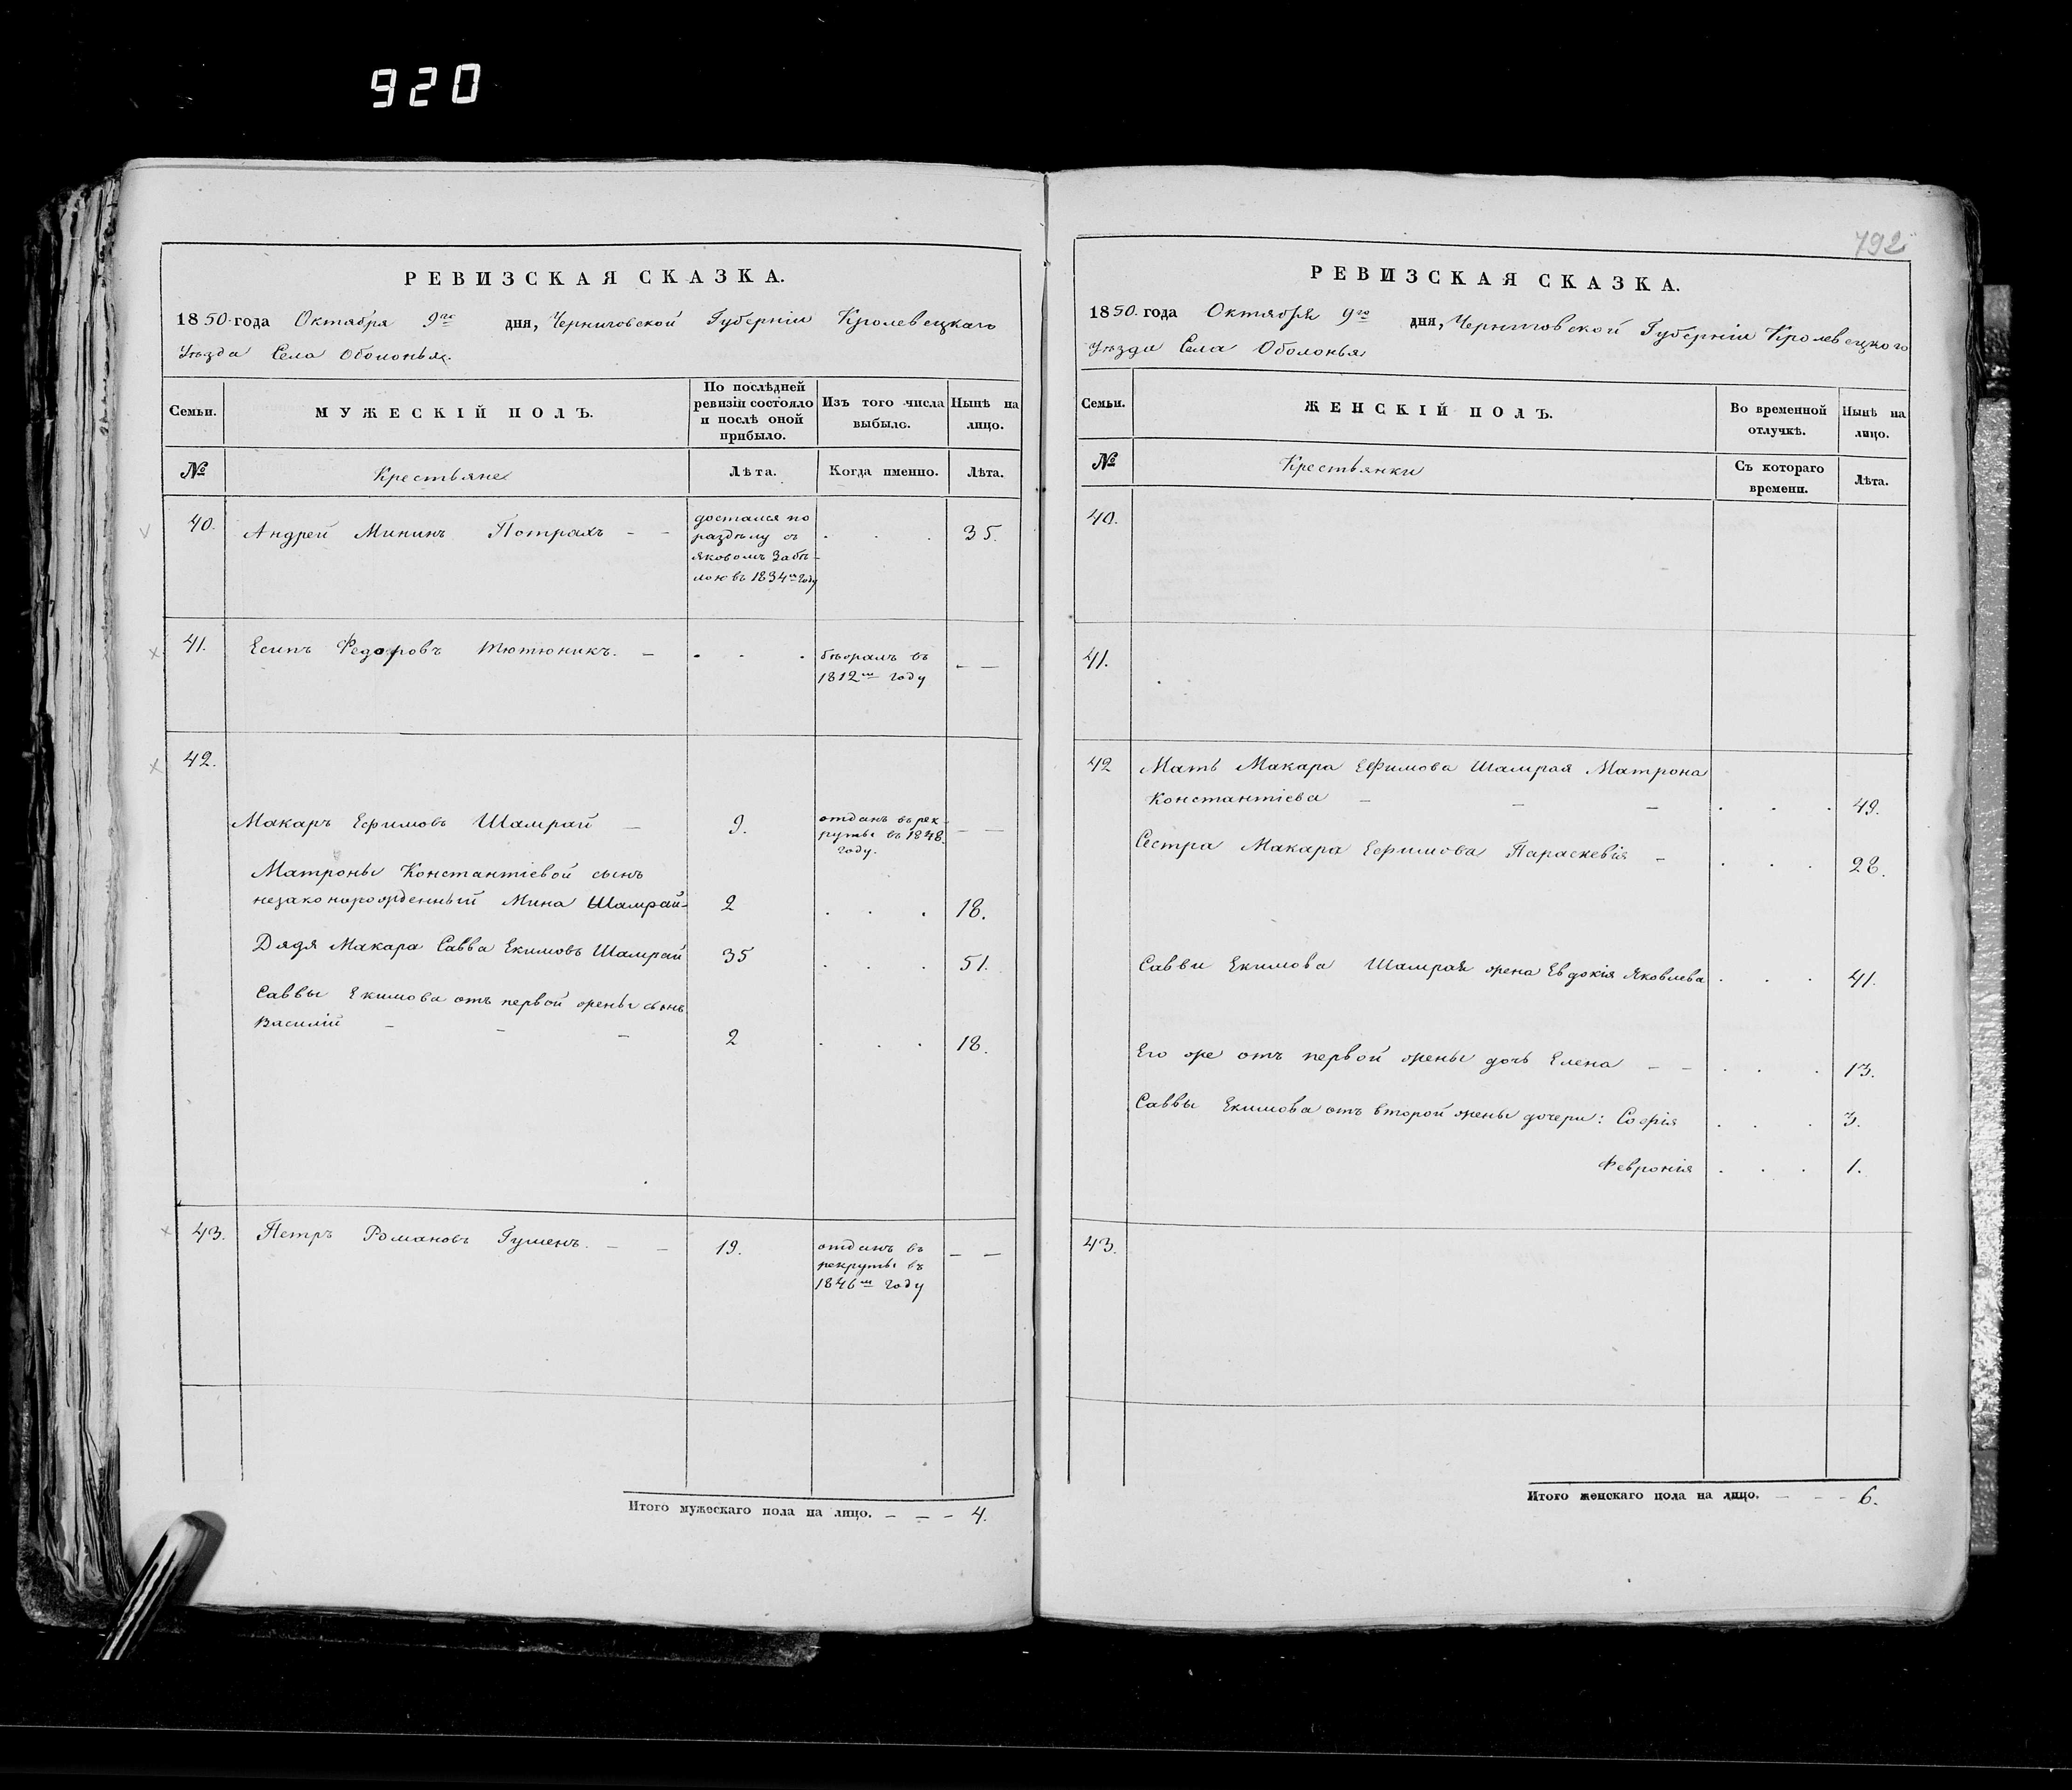 920
РЕВИЗСКАЯ СКАЗКА.
1850 года Октября 9го дня, Черниговской Губерніи Кролевецкаго
Уѣзда Села Оболонья.
Семьи.
МУЖЕСКІЙ ПОЛЪ.
По послѣдней
ревизіи состояло
и послѣ оной
прибыло.
Изъ того числа
выбыло.
Нынѣ на
лицо.
№
Крестьяне
Лѣта.
Когда именно.
Лѣта.
40.
Андрей Мининъ Потрахъ — —
достался по
раздѣлу съ
Яковомъ Забѣ-
лою въ 1834м году
. . .
35.
41.
Есипъ Федоровъ Тютюникъ. —
. . .
бѣжалъ въ
1812м году
— —
42.
Макаръ Ефимовъ Шамрай —
9.
отданъ въ рек-
руты въ 1848.
году.
— —
Матроны Константіевой сынъ
незаконорожденный Мина Шамрай-
2
. . .
18.
Дядя Макара Савва Екимовъ Шамрай
35
. . .
51.
Саввы Екимова отъ первой жены сынъ
Василій — — —
2
. . .
18.
43.
Петръ Романовъ Гуменъ. — —
19.
отданъ въ
рекруты въ
1846м году
— —
Итого мужескаго пола на лицо. — — — 4.
792
РЕВИЗСКАЯ СКАЗКА.
1850. года Октября 9го дня, Черниговской Губерніи Кролевецкого
Уѣзда Села Оболонья
Семьи.
ЖЕНСКІЙ ПОЛЪ.
Во временной
отлучкѣ.
Нынѣ на
лицо.
№
Крестьянки
Съ котораго
времени.
Лѣта.
40.
41.
42
Мать Макара Ефимова Шамрая Матрона
Константіева — — —
. . .
49.
Сестра Макара Ефимова Параскевія —
. . .
28.
Саввы Екимова Шамрая жена Евдокія Яковлева
. . .
41.
Его же отъ первой жены дочь Елена — —
. . .
13.
Саввы Екимова отъ второй жены дочери: Софія
. . .
3.
Февронія
. . .
1.
43.
Итого женскаго пола на лицо. — — — 6.